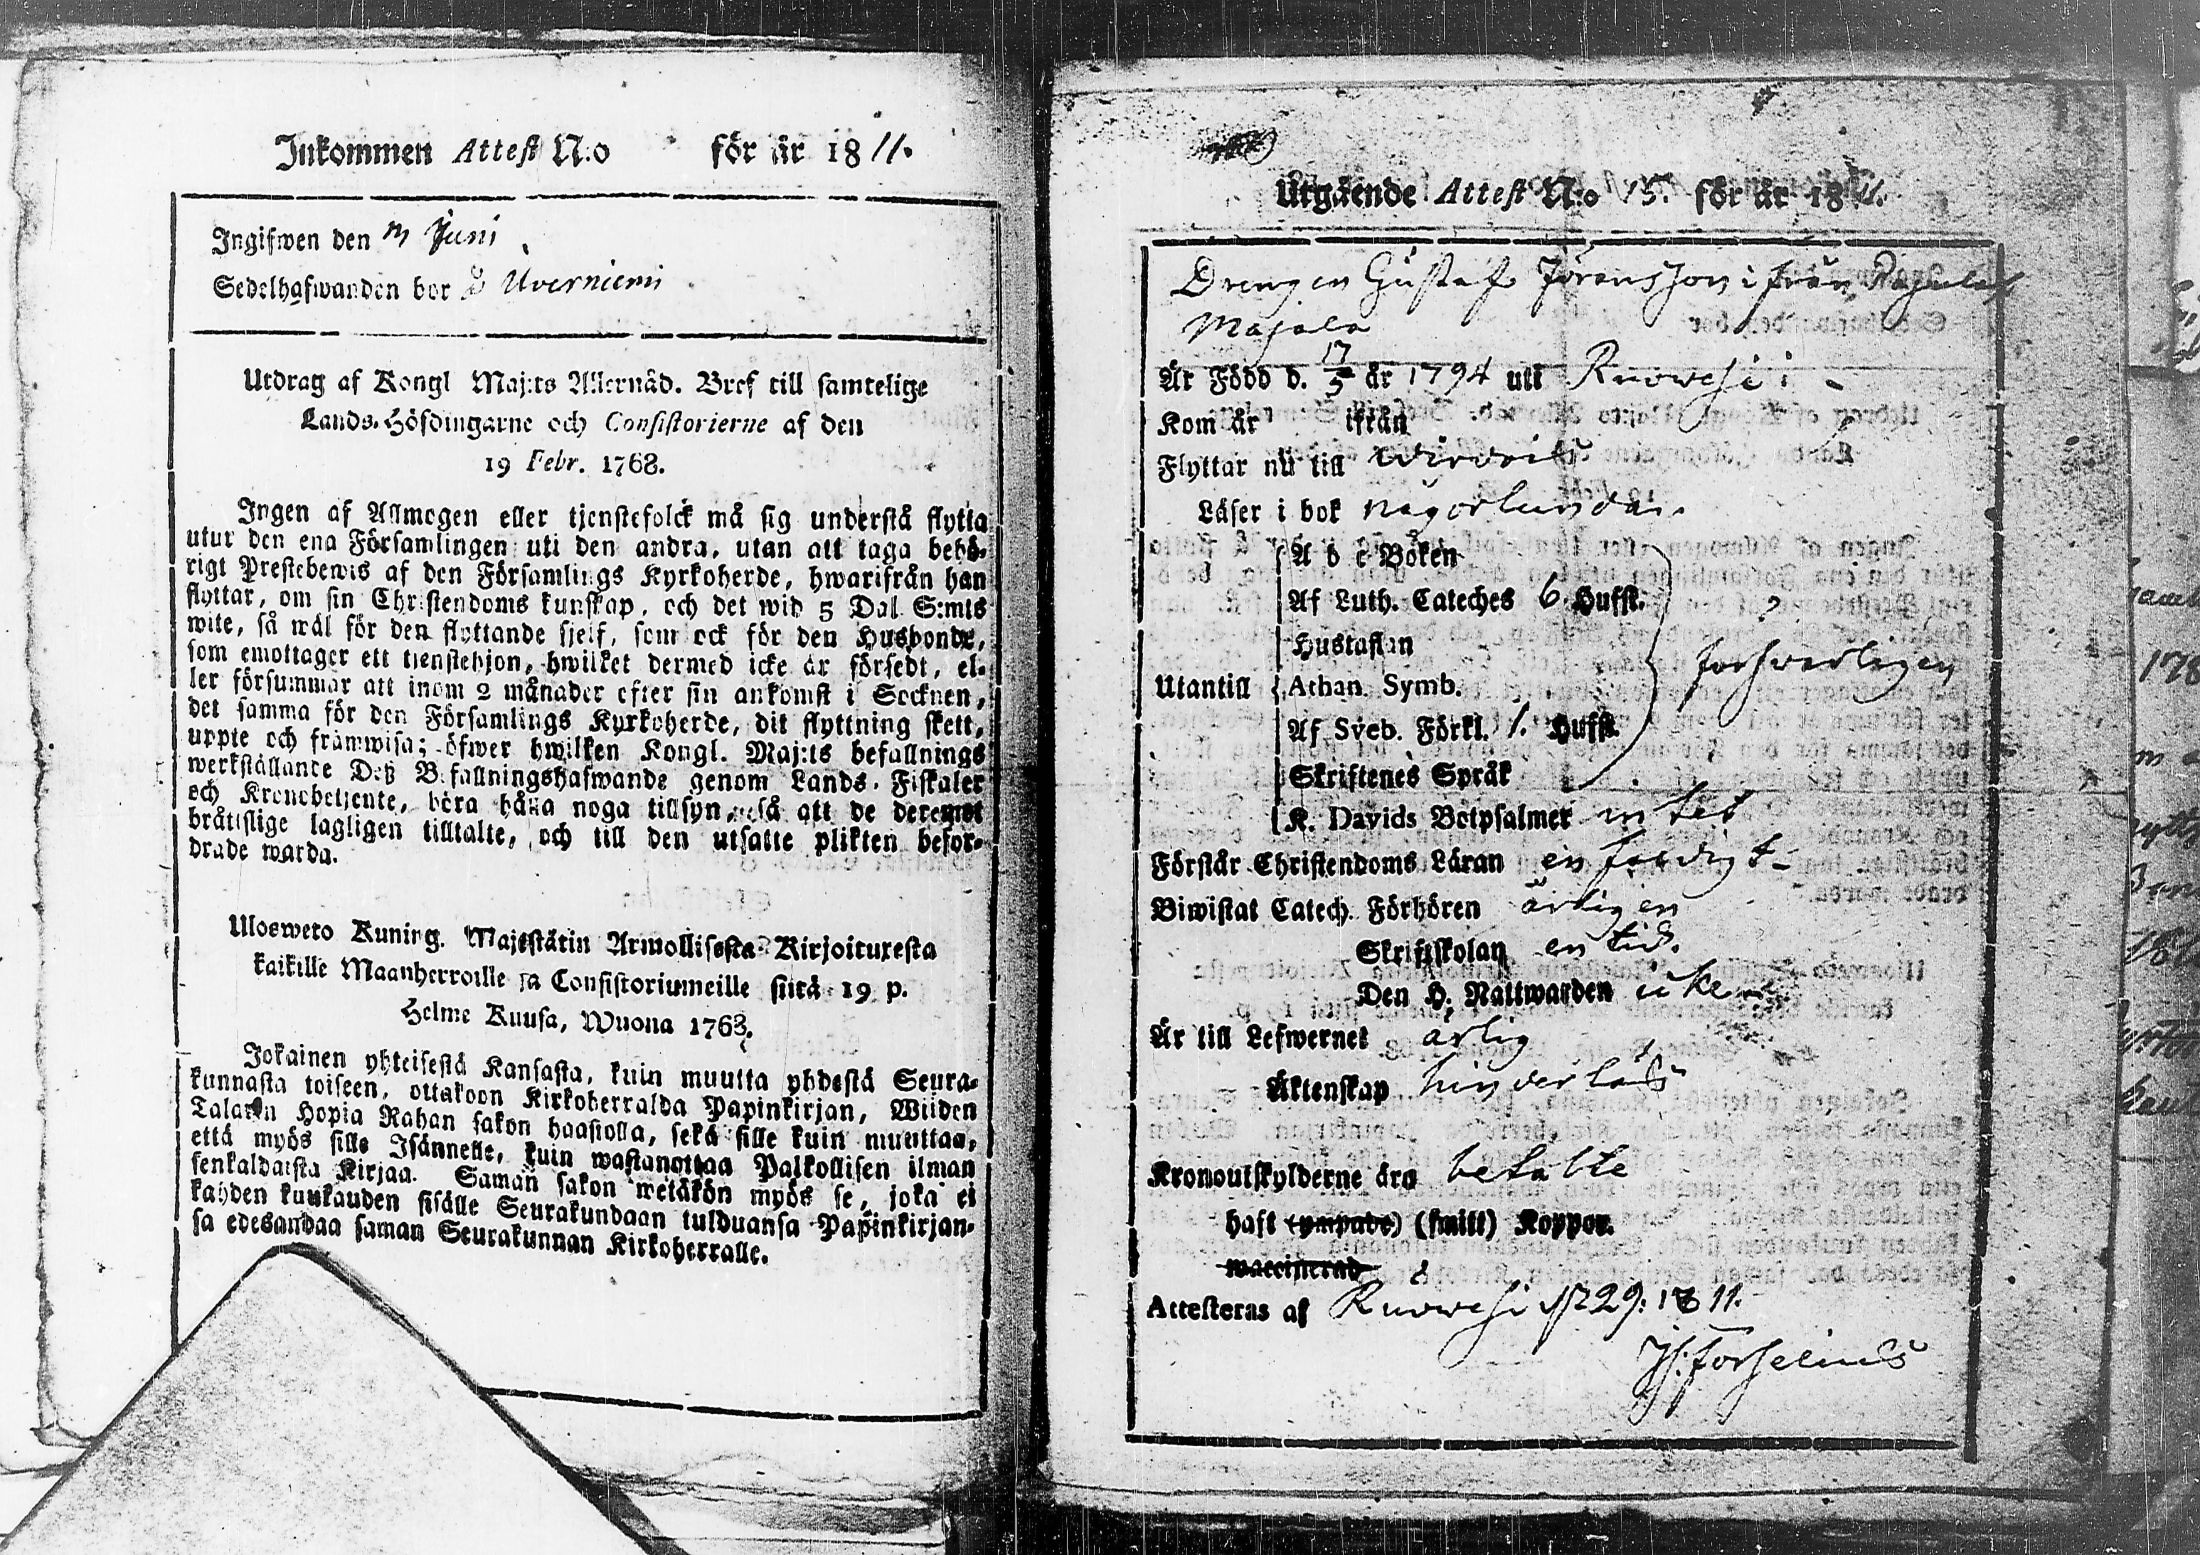 Inkommen Attest N:o för år 1811.
Ingifwen den Juni
Sedelhafwanden bor Uverniemi
Utdrag af Kongl Maj:ts Allernåd. Bref till samtelige
Lands-Höfdingarne och Consistorierne af den
19 Febr. 1768.
Ingen af Allmogen eller tjenstefolck må sig understå flytta
utur den ena Församlingen uti den andra, utan att taga behö-
rigt Prestebewis af den Församlings Kyrkoherde, hwarifrån han
flyttar, om sin Christendoms kunskap, och det wid 5 Dal. S:mts
wite, så wäl för den flyttande sjelf, som ock för den Husbonde,
som emottager ett tienstehjon, hwilket dermed icke är försedt, el-
ler försummar att inom 2 månader efter sin ankomst i Socknen,
det samma för den Församlings Kyrkoherde, dit flyttning skett,
uppte och framwisa; öfwer hwilken Kongl. Maj:ts befallnings
werkställande Deß Befallningshafwande genom Lands-Fiskaler
och Kronobetjente, böra hålla noga tillsyn, så att de deremot
bråttslige lagligen tilltalte, och till den utsatte plikten befor-
drade warda.
Ulosweto Kuning. Majestätin Armollisesta Kirjoituxesta
kaikille Maanherroille ja Consistoriumeille siitä 19 p.
Helme Kuusa, Wuona 1768.
Jokainen yhteisestä Kansasta, kuin muutta yhdestä Seura-
kunnasta toiseen, ottakoon Kirkoherralda Papinkirjan, Wiiden
Talarin Hopia Rahan sakon haastolla, sekä sille kuin muuttaa,
että myös sille Isännelle, kuin wastanottaa Palkollisen ilman
senkaldaista Kirjaa. Saman sakon wetäkön myös se, joka ei
kahden kuukauden sisälle Seurakundaan tulduansa Papinkirjan-
sa edesandaa saman Seurakunnan Kirkoherralle.
Utgående Attest N:o 15. för år 1811.
Drengen Gustaf Göransson ifrån
Majala
Är Född d. 17/5 år 1794 uti Ruowesi
Kom år ifrån
Flyttar nu till Wirdois
Läser i bok någorlunda.
A b c Boken
Af Luth. Cateches 6 Hufst.
Hustaflan
Utantill Athan. Symb. forsvarligen
Af Sveb. Förkl. 1. Hufst.
Skriftenes Språk
K. Davids Botpsalmer intet
Förstår Christendoms Läran enfaldigt
Biwistat Catech. Förhören årligen
Skriftskolan en tid.
Den H. Nattwarden icke
Är till Lefwernet ärlig
Äktenskap hinderlös
Kronoutskylderne äro betalte
haft (ympade) (smitt) Koppor.
waccinerad
Attesteras af Ruowesi 29. 1811.
Forselius